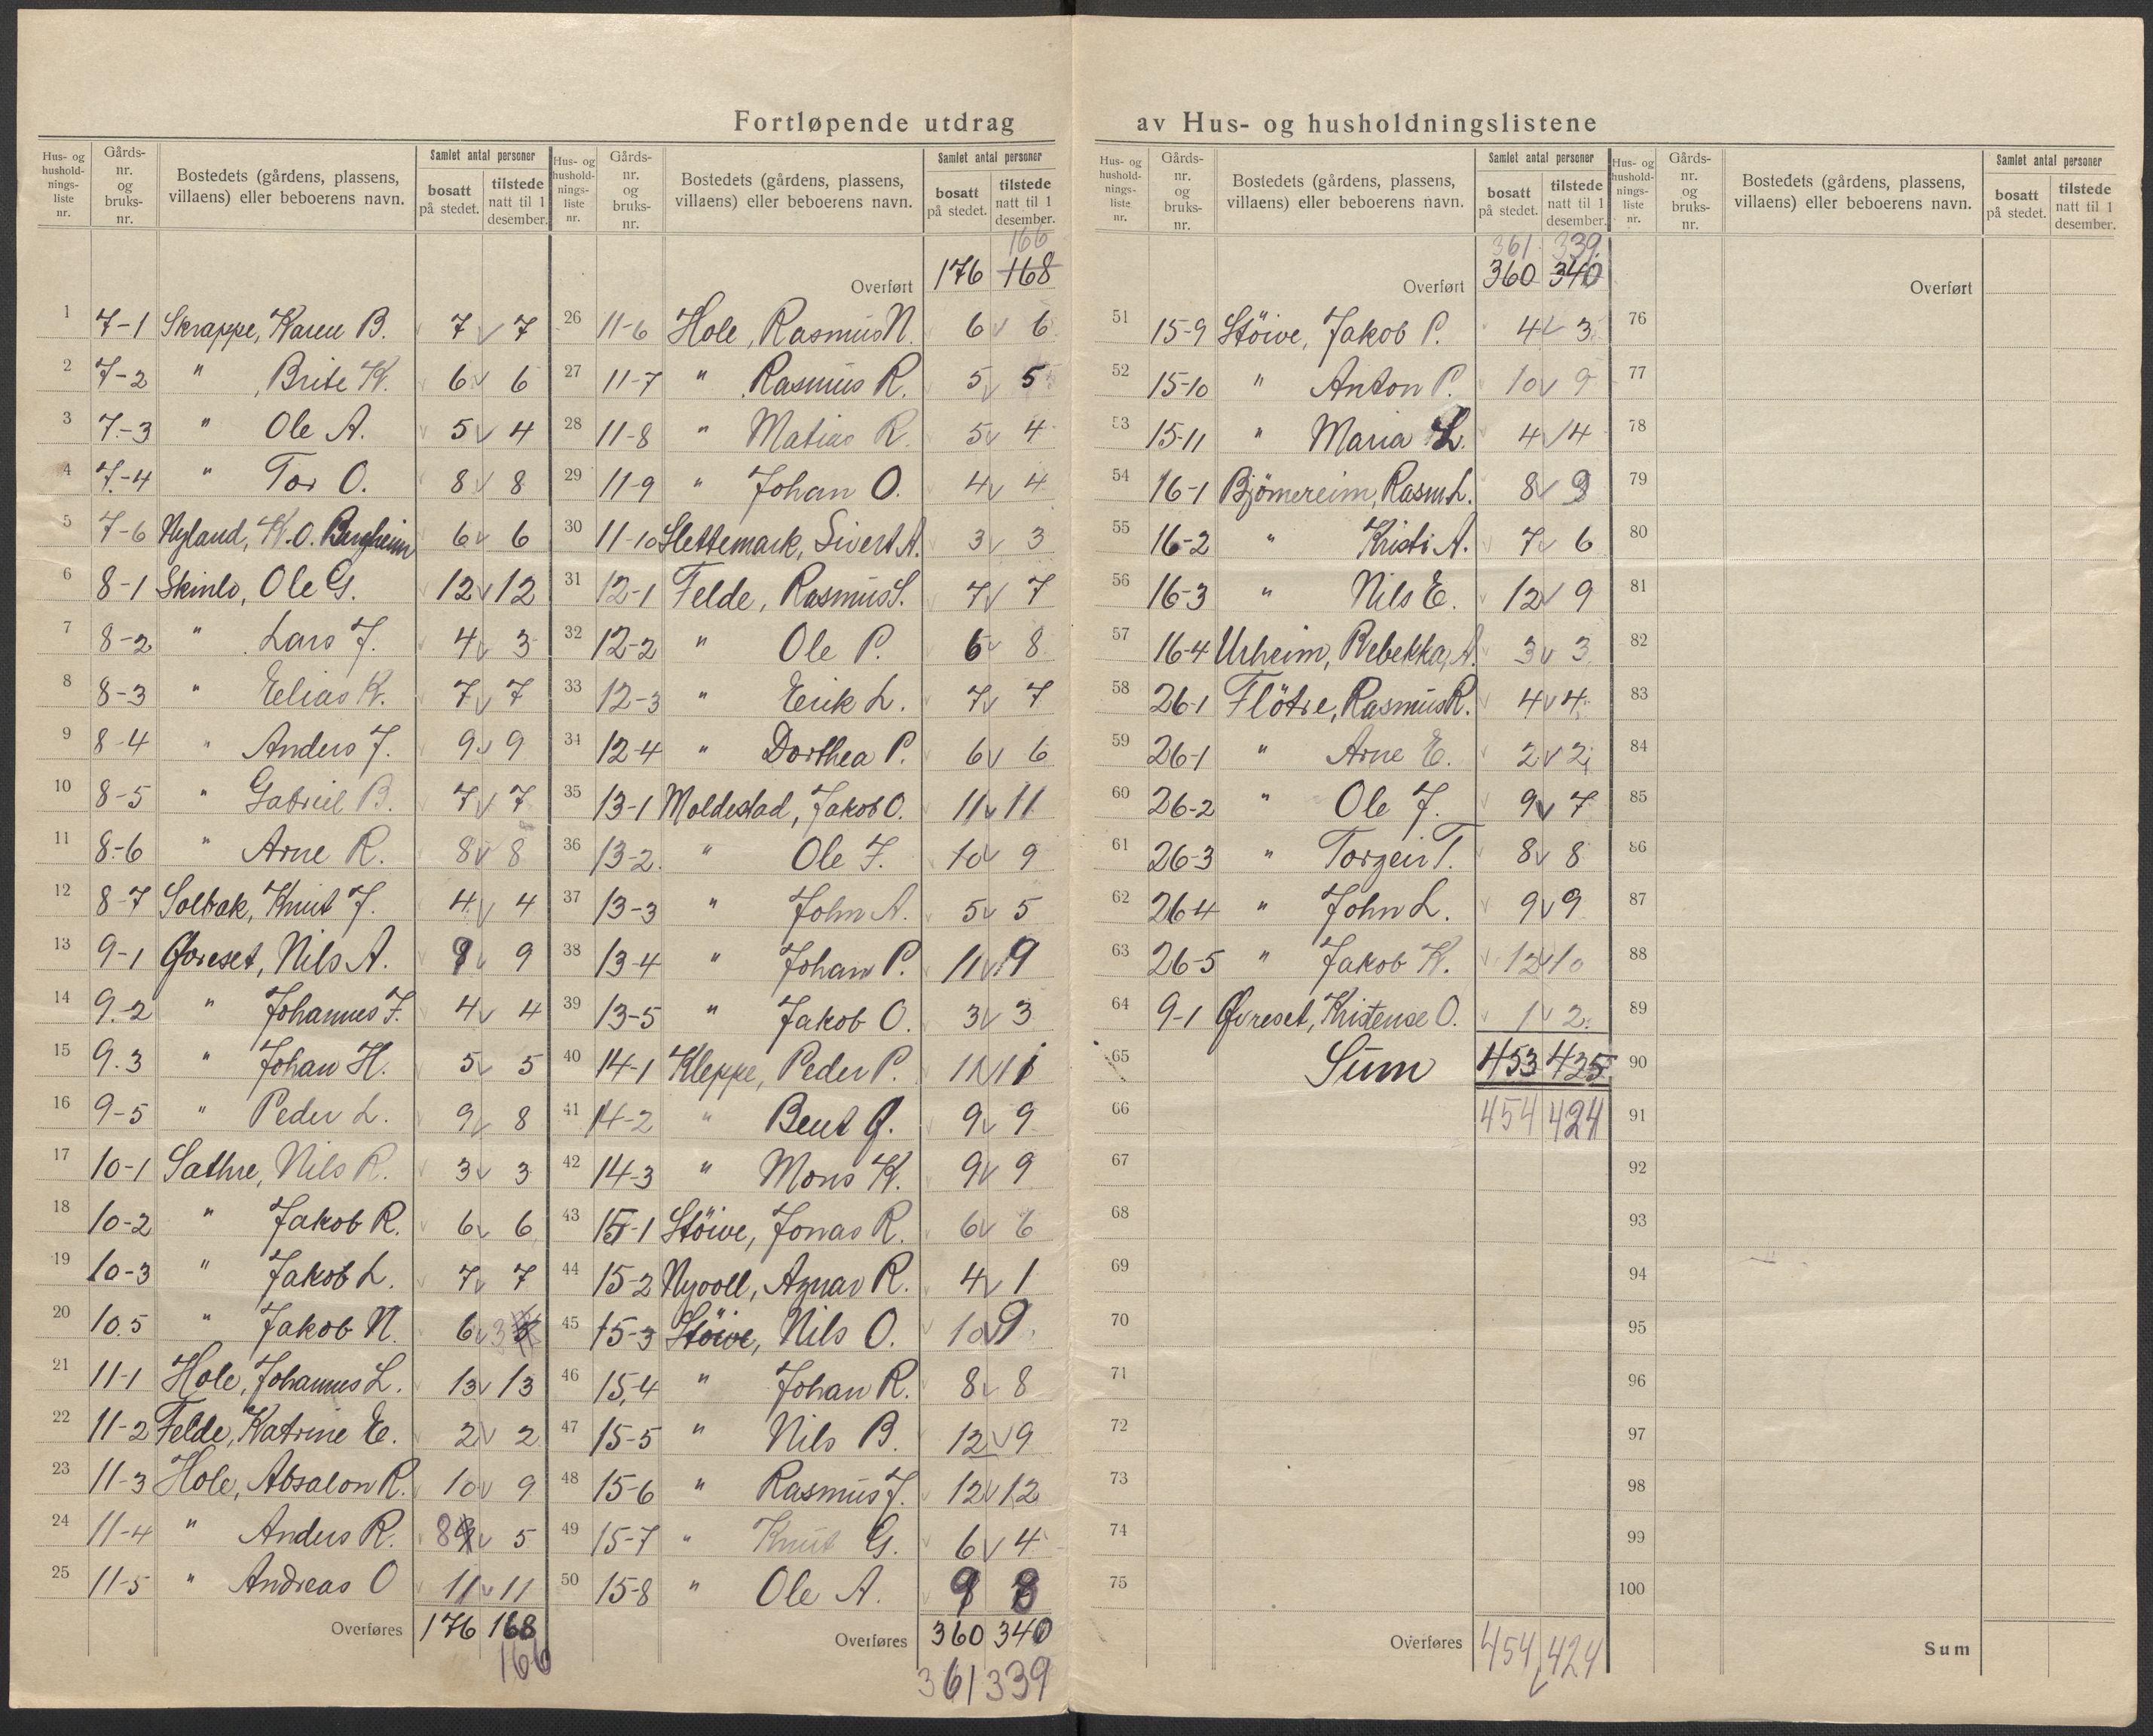 Fortløpende utdrag av Hus- og husholdningslistene
Hus- og hushold-nings-liste nr. Gårds-nr. og bruks-nr. Bostedets (gårdens, plassens, villaens) eller beboerens navn. Samlet antal personer bosatt på stedet. tilstede natt til 1 desember.
1 7-1 Skrappe, Karen B. 7 v 7
2 7-2 " Brite K. 6 v 6
3 7-3 " Ole A. 5 v 4
4 7-4 " Tor O. 8 v 8
5 7-6 Nyland, K.O. Bergheim 6 v 6
6 8-1 Skinlo, Ole G. 12 v 12
7 8-2 " Lars J. 4 v 3
8 8-3 " Elias K. 7 v 7
9 8-4 " Anders J. 9 v 9
10 8-5 " Gabriel B. 7 v 7
11 8-6 " Arne R. 8 v 8
12 8-7 Solbak, Knut J. 4 v 4
13 9-1 Øvreset, Nils A. 9 v 9
14 9-2 " Johannes J. 4 v 4
15 9.3 " Johan H. 5 v 5
16 9-5 " Peder L. 9 v 8
17 10-1 Sathre, Nils R. 3 v 3
18 10-2 " Jakob R. 6 v 6
19 10-3 " Jakob L. 7 v 7
20 10.5 " Jakob N. 6 v 3
21 11-1 Hole, Johannes L. 13 v 13
22 11-2 Felde, Katrine E. 2 v 2
23 11-3 Hole, Absalon R. 10 v 9
24 11-4 " Anders R. 8 v 5
25 11-5 " Andreas O 11 v 11
Overføres 176 168
166
Hus- og hushold-nings-liste nr. Gårds-nr. og bruks-nr. Bostedets (gårdens, plassens, villaens) eller beboerens navn. Samlet antal personer bosatt på stedet. tilstede natt til 1 desember.
166
Overført 176 168
26 11-6 Hole, Rasmus N. 6 v 6
27 11-7 " Rasmus R. 5 v 5
28 11-8 " Matias R. 5 v 4
29 11-9 " Johan O. 4 v 4
30 11-10 Slettemark, Sivert A. 3 v 3
31 12-1 Felde, Rasmus S. 7 v 7
32 12-2 " Ole P. 6 v 8
33 12-3 " Erik L. 7 v 7
34 12-4 " Dorthea P. 6 v 6
35 13-1 Moldestad, Jakob O. 11 v 11
36 13-2. " Ole J. 10 v 9
37 13-3 " John A. 5 v 5
38 13-4 " Johan P. 11 v 9
39 13-5 " Jakob O. 3 v 3
40 14-1 Kleppe, Peder P. 11 v 11
41 14-2 " Bent Q. 9 v 9
42 14-3 " Mons K. 9 v 9
43 15-1 Støive, Jonas R. 6 v 6
44 15-2 Nyvoll, Agnar R. 4 v 1
45 15-3 Støive, Nils O. 10 v 9
46 15,4 " Johan R. 8 v 8
47 15-5 " Nils B. 12 v 9
48 15-6 " Rasmus J. 12 v 12
49 15-7 " Knut G. 6 v 4
50 15-8 " Ole A. 9 8
Overføres 360 340
361 339
Hus- og hushold-nings-liste nr. Gårds-nr. og bruks-nr. Bostedets (gårdens, plassens, villaens) eller beboerens navn. Samlet antal personer bosatt på stedet. tilstede natt til 1 desember.
361 339
Overført 360 340
51 15-9 Støive, Jakob P. 4 v 3
52 15-10 " Anton P. 10 v 9
53 15-11 " Maria L. 4 v 4
54 16-1 Bjömereim, Rasm. L. 8 v 9
55 16-2 " Kristi A. 7 v 6
56 16-3 " Nils E. 12 v 9
57 16-4 Urheim, Rebekka A. 3 v 3
58 26-1 Flötre, Rasmus R. 4 v 4
59 26-1 " Arne E. 2 v 2
60 26-2 " Ole J. 9 v 7
61 26-3 " Torgeir T. 8 v 8
62 26-4 " John L. 9 v 9
63 26-5 " Jakob K. 12 v 10
64 9-1 Øvreset, Kristense O. 1 v 2
65 Sum 453 425
66 454 424
67
68
69
70
71
72
73
74
75
Overføres 454 424
Hus- og hushold-nings-liste nr. Gårds-nr. og bruks-nr. Bostedets (gårdens, plassens, villaens) eller beboerens navn. Samlet antal personer bosatt på stedet. tilstede natt til 1 desember.
Overført
76
77
78
79
80
81
82
83
84
85
86
87
88
89
90
91
92
93
94
95
96
97
98
99
100
Sum